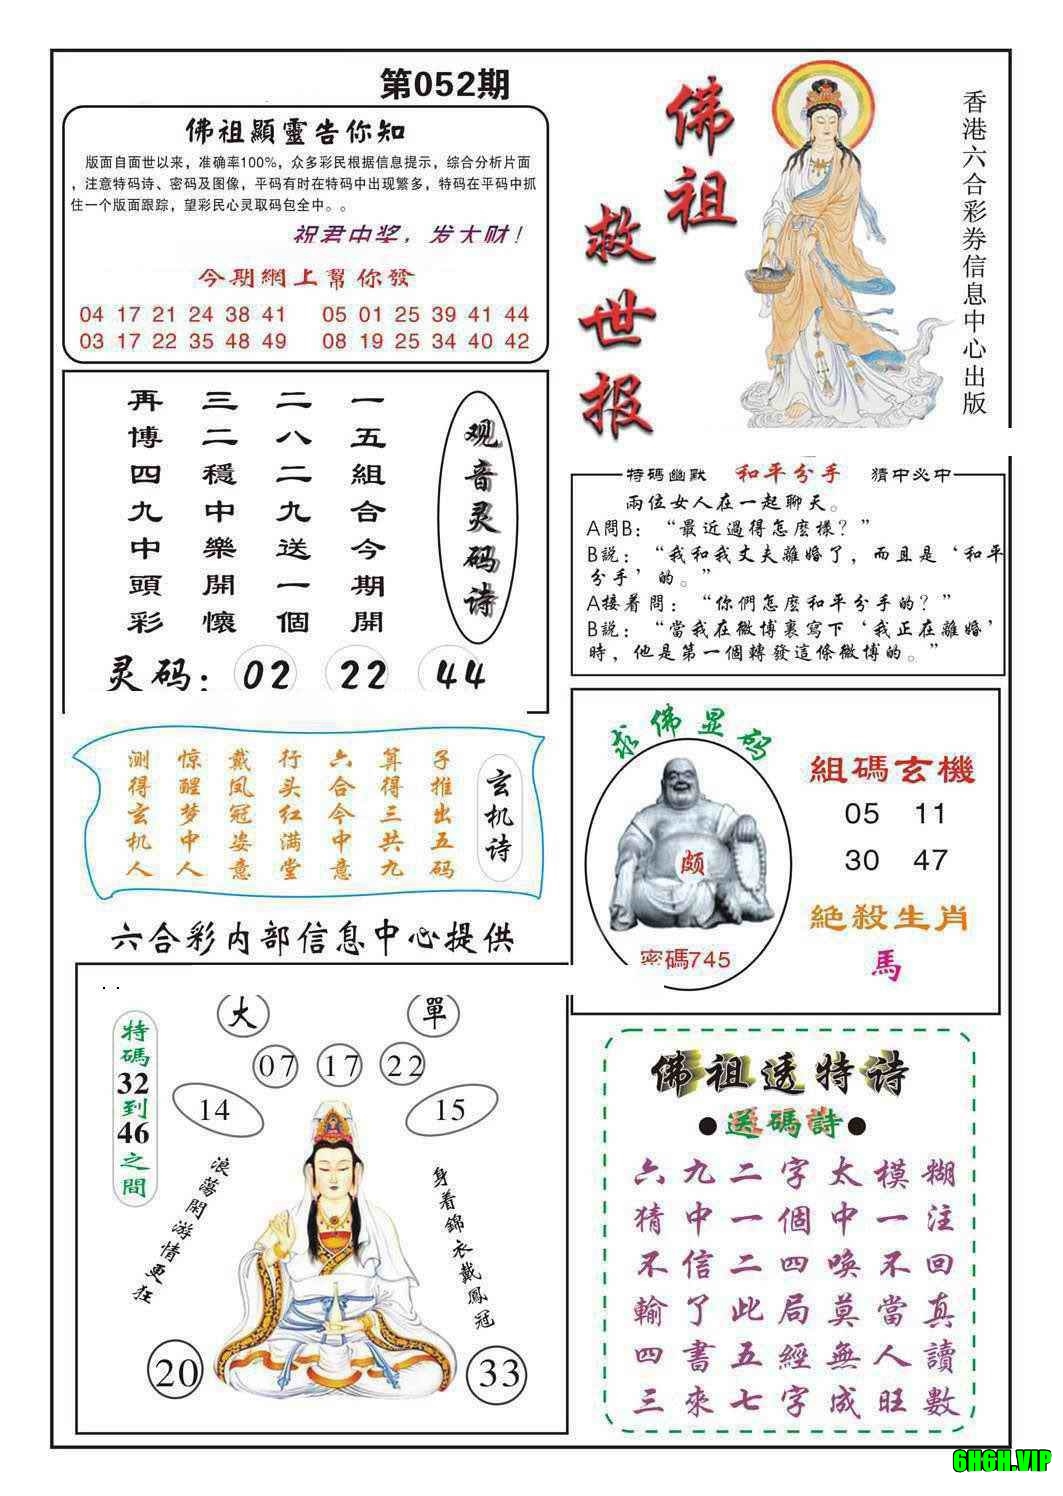 第052期
佛祖顯靈告你知
版面自面世以来，准确率100%，众多彩民根据信息提示，综合分析片面
，注意特码诗、密码及图像，平码有时在特码中出现繁多，特码在平码中抓
住一个版面跟踪，望彩民心灵取码包全中。。
祝君中奖，发大财！
今期網上幫你發
04 17 21 24 38 41 05 01 25 39 41 44
03 17 22 35 48 49 08 19 25 34 40 42
佛祖
救世报
香港六合彩券信息中心出版
观音灵码诗
一五組合今期開
二八二九送一個
三二穩中樂開懷
再博四九中頭彩
灵码： 02 22 44
特碼幽默 和平分手 猜中必中
兩位女人在一起聊天。
A問B：“最近過得怎麽樣？”
B説：“我和我丈夫離婚了，而且是‘和平
分手’的。”
A接着問：“你們怎麽和平分手的？”
B説：“當我在微博裏寫下‘我正在離婚’
時，他是第一個轉發這條微博的。”
玄机诗
子推出五码
算得三共九
六合今中意
行头红满堂
戴凤冠姿意
惊醒梦中人
测得玄机人
求佛显码
颇
密碼745
組碼玄機
05 11
30 47
絕殺生肖
馬
六合彩内部信息中心提供
大 單
07 17 22
14 15
特碼32到46之間
浪蕩閑游情更狂
身着錦衣戴鳳冠
20 33
佛祖透特诗
●送碼詩●
六九二字太模糊
猜中一個中一注
不信二四唤不回
輸了此局莫當真
四書五經無人讀
三來七字成旺數
6H6H.VIP